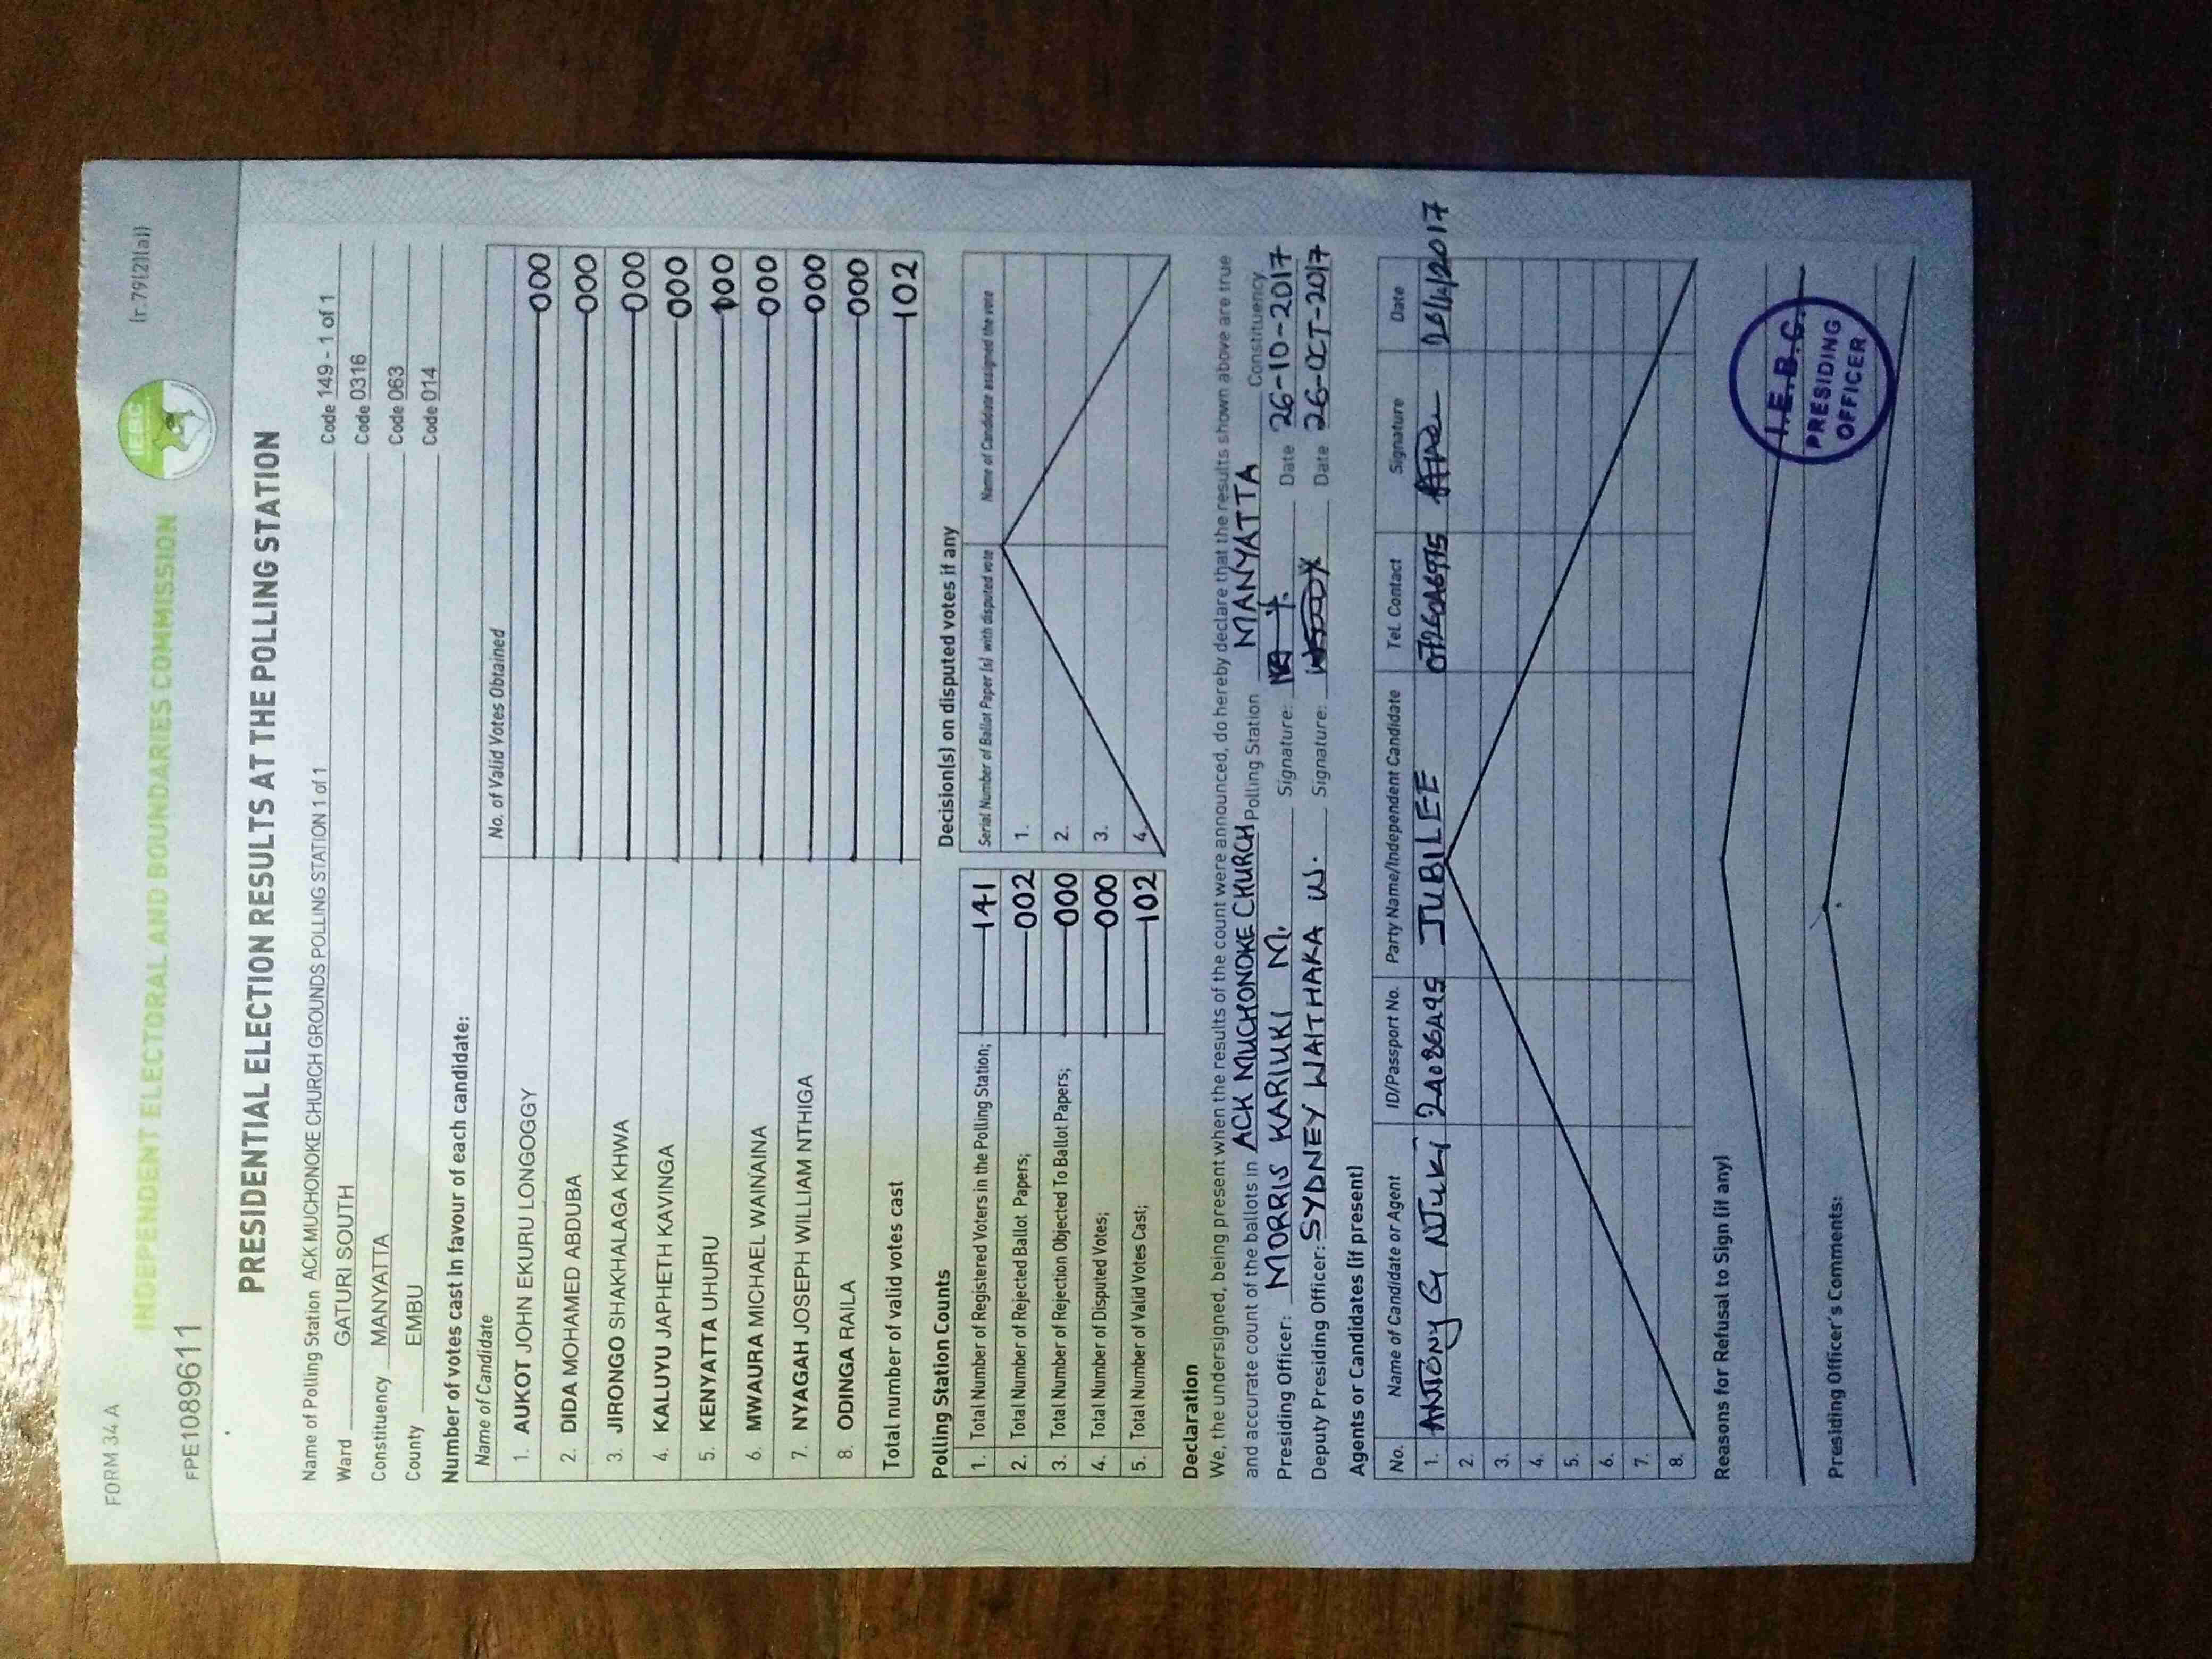 FORM 34 A
(r.79(2)(a))
INDEPENDENT ELECTORAL AND BOUNDARIES COMMISSION
IEBC
FPE1089611
PRESIDENTIAL ELECTION RESULTS AT THE POLLING STATION
Name of Polling Station ACK MUCHONOKE CHURCH GROUNDS POLLING STATION 1 of 1 Code 149 - 1 of 1
Ward GATURI SOUTH Code 0316
Constituency MANYATTA Code 063
County EMBU Code 014
Number of votes cast in favour of each candidate:
Name of Candidate No. of Valid Votes Obtained
1. AUKOT JOHN EKURU LONGOGGY 000
2. DIDA MOHAMED ABDUBA 000
3. JIRONGO SHAKHALAGA KHWA 000
4. KALUYU JAPHETH KAVINGA 000
5. KENYATTA UHURU
6. MWAURA MICHAEL WAINAINA 000
7. NYAGAH JOSEPH WILLIAM NTHIGA 000
8. ODINGA RAILA 000
Total number of valid votes cast 102
Polling Station Counts
1. Total Number of Registered Voters in the Polling Station; 141
2. Total Number of Rejected Ballot Papers; 002
3. Total Number of Rejection Objected To Ballot Papers; 000
4. Total Number of Disputed Votes; 000
5. Total Number of Valid Votes Cast; 102
Decision(s) on disputed votes if any
Serial Number of Ballot Paper (s) with disputed vote Name of Candidate assigned the vote
1.
2.
3.
4.
Declaration
We, the undersigned, being present when the results of the count were announced, do hereby declare that the results shown above are true
and accurate count of the ballots in ACK MUCHONOKE CHURCH Polling Station MANYATTA Constituency
Presiding Officer: MORRIS KARIUKI M. Signature: Date 26-10-2017
Deputy Presiding Officer: SYDNEY WAITHAKA W. Signature: Date 26-OCT-2017
Agents or Candidates (if present)
No. Name of Candidate or Agent ID/Passport No. Party Name/Independent Candidate Tel. Contact Signature Date
1. ANTONY G NJUKI JUBILEE
2.
3.
4.
5.
6.
7.
8.
Reasons for Refusal to Sign (if any)
Presiding Officer's Comments:
I.E.B.C.
PRESIDING
OFFICER